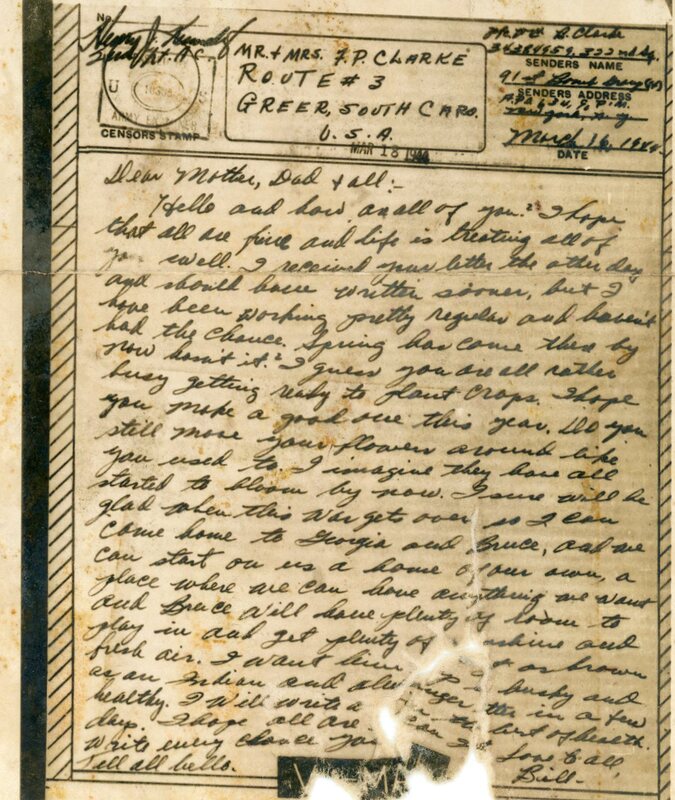 No.
Henry J.
2nd Lt. A.C.
U
ARMY EXAMINER
CENSORS STAMP
MR. & MRS. F.P. CLARKE
ROUTE # 3
GREER, SOUTH CARO.
U.S.A.
MAR 18 1944
B. Clarke
34384959. 322nd
SENDERS NAME
91st Bomb Group (H)
SENDERS ADDRESS
A.P.O. 634, % P.M.
New York,
March 16, 1944
DATE
Dear Mother, Dad & all:-
Hello and how are all of you? I hope
that all are fine and life is treating all of
you well. I received your letter the other day
and should have written sooner, but I
have been working pretty regular and haven't
had the chance. Spring has come there by
now hasn't it? I guess you are all rather
busy getting ready to plant crops. I hope
you make a good one this year. Do you
still move your flowers around like
you used to. I imagine they have all
started to bloom by now. I sure will be
glad when this war gets over so I can
come home to Georgia and Bruce, and we
can start on us a home of our own, a
place where we can have anything we want
and Bruce will have plenty of room to
play in and get plenty of shine and
fresh air. I want him as brown
as an Indian and husky and
healthy. I will write a in a few
days. I hope all are the best of health.
Write every chance you Love to all,
Tell all hello.
Bill-
V MA